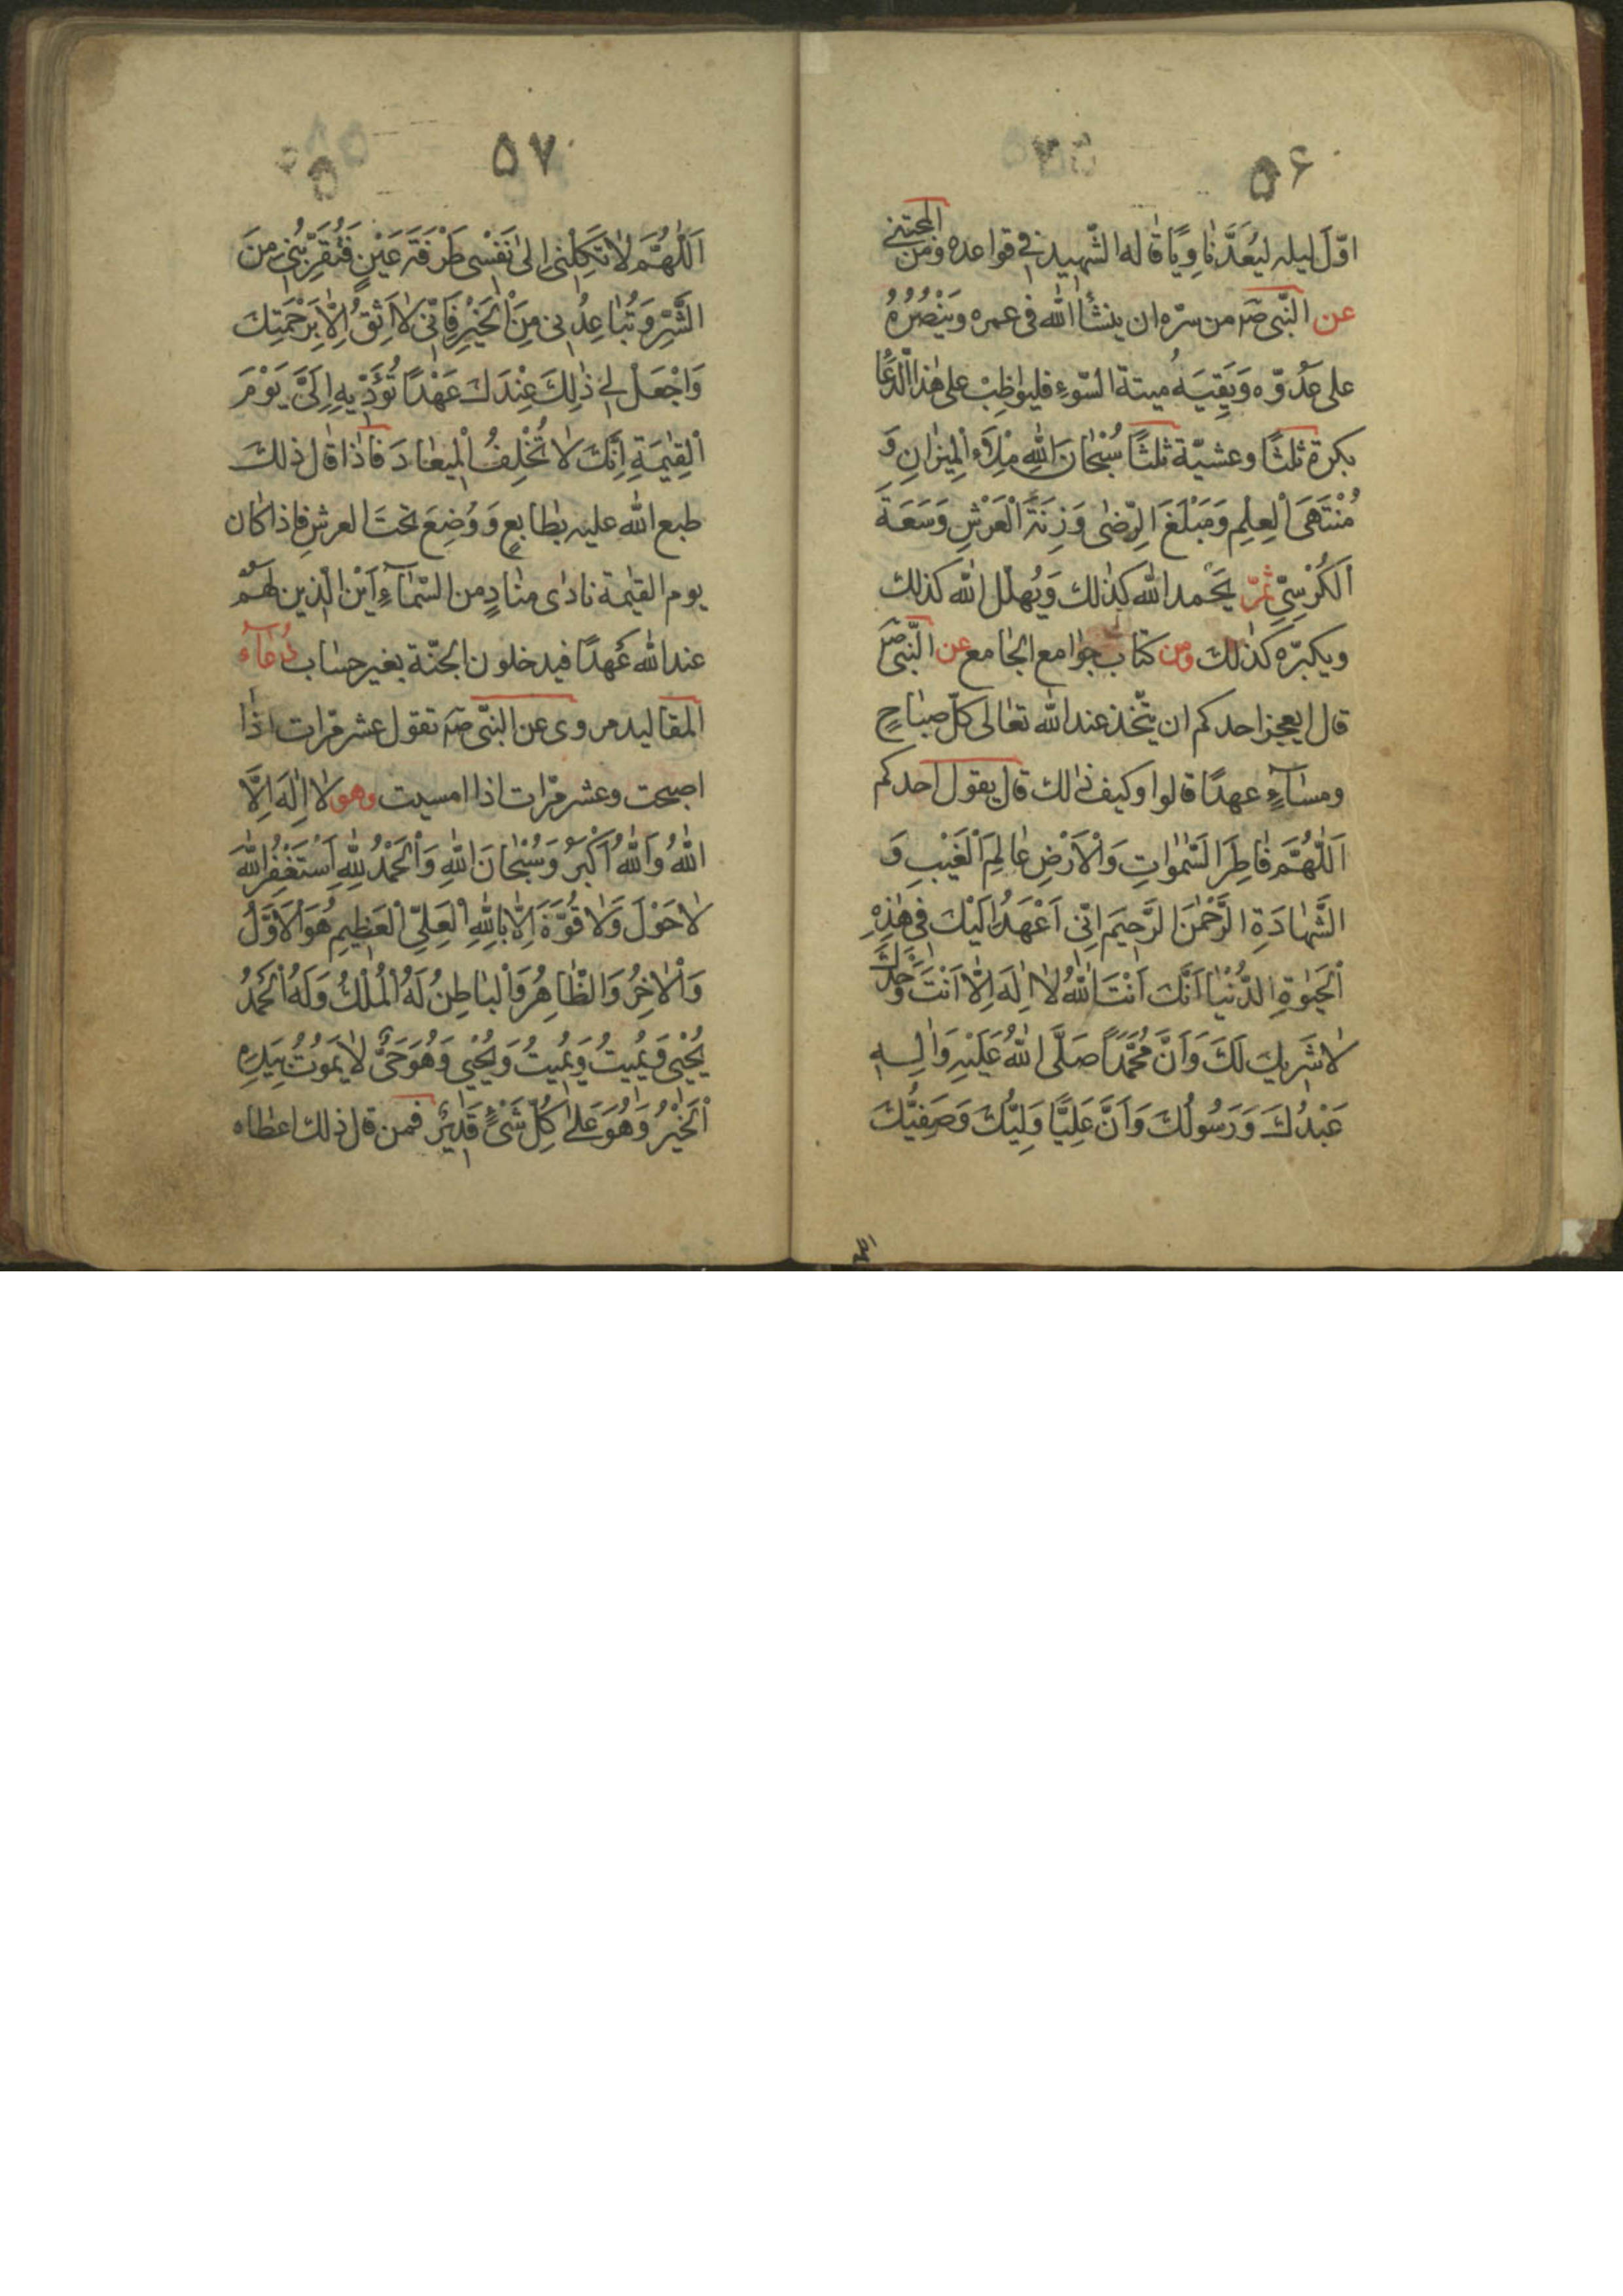 ۵۶
اوّلَ ليله ليُعَدَّ نٰاوِيًا قٰاله الشّهيد في قواعده ومن المجتنى
عن النّبى صۤ من سرّه ان ينسَأ الله فى عمره وَيَنْصُرُهُ
على عَدُوّه وَيَقِيَهُ ميتة السّوءِ فليواظِبْ على هٰذا الدُّعَا
بكرة ثلثًا وعشيّة ثلثًا سُبْحٰانَ اللهِ مِلْاَءَ الْمِيزٰانِ وَ
مُنْتَهَى الْعِلِمِ وَمَبْلَغَ الرِّضٰى وَزِنَةَ الْعَرْشِ وَسَعَةَ
الْكُرْسِيِّ ثمّ يَحْمد الله كذٰلك وَيُهلّل الله كذلك
ويكبّره كذلك ومن كتاب جوٰامع الجٰامع عن النّبىّ صۤ
قال ايعجز احدكم ان يتّخذ عند الله تعٰالى كلّ صبٰاحٍ
ومسٰاۤءٍ عهدًا قالوا وكيف ذٰلك قال يقول احدكم
اَللّٰهُمَّ فٰاطِرَ السَّمٰوٰاتِ وَالْاَرْضِ عٰالِمَ الْغَيْبِ وَ
الشَّهٰادَةِ الرَّحْمٰنَ الرَّحِيمَ اِنّى اَعْهَدُ اِلَيْكَ فى هٰذِهِ
الْحَيٰوةِ الدُّنْيٰا اَنَّكَ اَنْتَ اللهُ لاٰ اِلٰهَ اِلّاٰ اَنْتَ وَحْدَكَ
لاٰ شَرِيكَ لَكَ وَاَنَّ مُحَمَّدًا صَلَّى اللهُ عَلَيْهِ وَاٰلِهِ
عَبْدُكَ وَرَسُولُكَ وَاَنَّ عَلِيًّا وَلِيُّكَ وَصَفِيُّكَ
۵۷
اَللّٰهُمَّ لاٰ تَكِلْنى اِلىٰ نَفْسى طَرْفَةَ عَيْنٍ فَتُقَرِّبُنى مِنَ
الشَّرِّ وَتُبٰاعِدُنى مِنَ الْخَيْرِ فَاِنّى لاٰ اَثِقُ اِلّاٰ بِرَحْمَتِكَ
وَاجْعَلْ لى ذٰلِكَ عِنْدَكَ عَهْدًا تُؤَدّيهِ اِلَىَّ يَوْمَ
الْقِيٰمَةِ اِنَّكَ لاٰ تُخْلِفُ الْمِيعٰادَ فاذٰا قال ذلك
طبع الله عليه بطابعٍ وَوُضِعَ تحتَ العرشِ فاذا كان
يوم القيٰمة نادٰى منٰادٍ من السّمٰاۤءِ اَيْنَ الّذين لهم
عند الله عهدًا فيدخلون الجنّة بغير حسٰاب دُعٰاۤء
المقٰاليد مروى عن النّبّى صۤ تقول عشر مرّات اذٰا
اصبحت وعشر مرّات اذا امسيت وهو لاٰ اِلٰهَ اِلّاَ
اللهُ وَاللهُ اَكْبَرُ وَسُبْحٰانَ اللهِ وَالْحَمْدُ لِلّٰهِ اَسْتَغْفِرُ اللهَ
لاٰ حَوْلَ وَلاٰ قُوَّةَ اِلّاٰ بِاللهِ الْعَلِىِّ الْعَظِيمِ هُوَ الْاَوَّلُ
وَالْاٰخِرُ وَالظّٰاهِرُ وَالْبٰاطِنُ لَهُ الْمُلْكُ وَلَهُ الْحَمْدُ
يُحْيى وَيُمِيتُ وَيُمِيتُ وَيُحْيى وَهُوَ حَىٌّ لاٰ يَمُوتُ بِيَدِهِ
الْخَيْرُ وَهُوَ عَلىٰ كُلِّ شَىْءٍ قَدِيرٌ فمن قال ذلك اعطاه